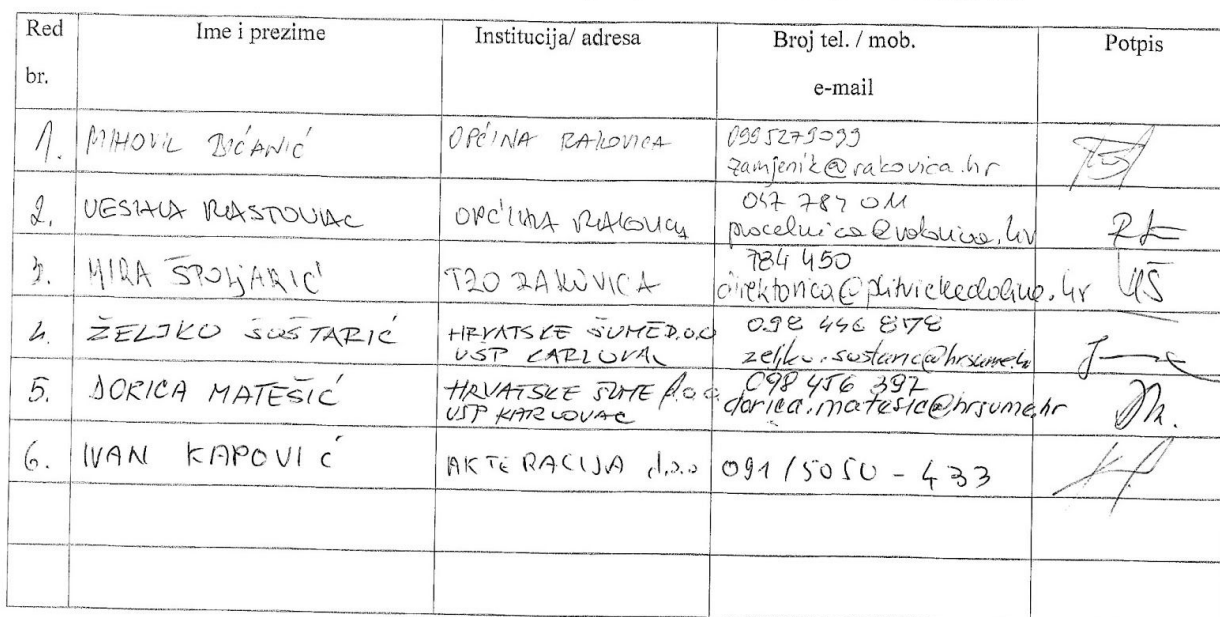 Red br. Ime i prezime Institucija/ adresa Broj tel. / mob. e-mail Potpis
1. MIHOVIL BIĆANIĆ OPĆINA RAKOVICA 0995279099
zamjenik@rakovica.hr
2. VESNA RASTOVAC OPĆINA RAKOVICA 047 784 011
procelnica@rakovica.hr
3. MIRA ŠPOLJARIĆ TZO RAKOVICA 784 450
direktorica@plitvickedoline.hr MŠ
4. ŽELJKO ŠUŠTARIĆ HRVATSKE ŠUME D.O.O 098 446 878
UŠP KARLOVAC zeljko.sustaric@hrsume.hr
5. DORICA MATEŠIĆ HRVATSKE ŠUME d.o.o. 098 456 392
UŠP KARLOVAC dorica.matesic@hrsume.hr
6. IVAN KAPOVIĆ AKTERACIJA d.o.o 091/5050-433